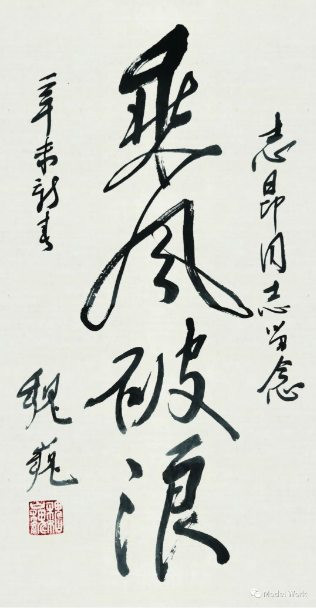 志昂同志留念
乘风破浪
辛未新春
魏巍
Model Work